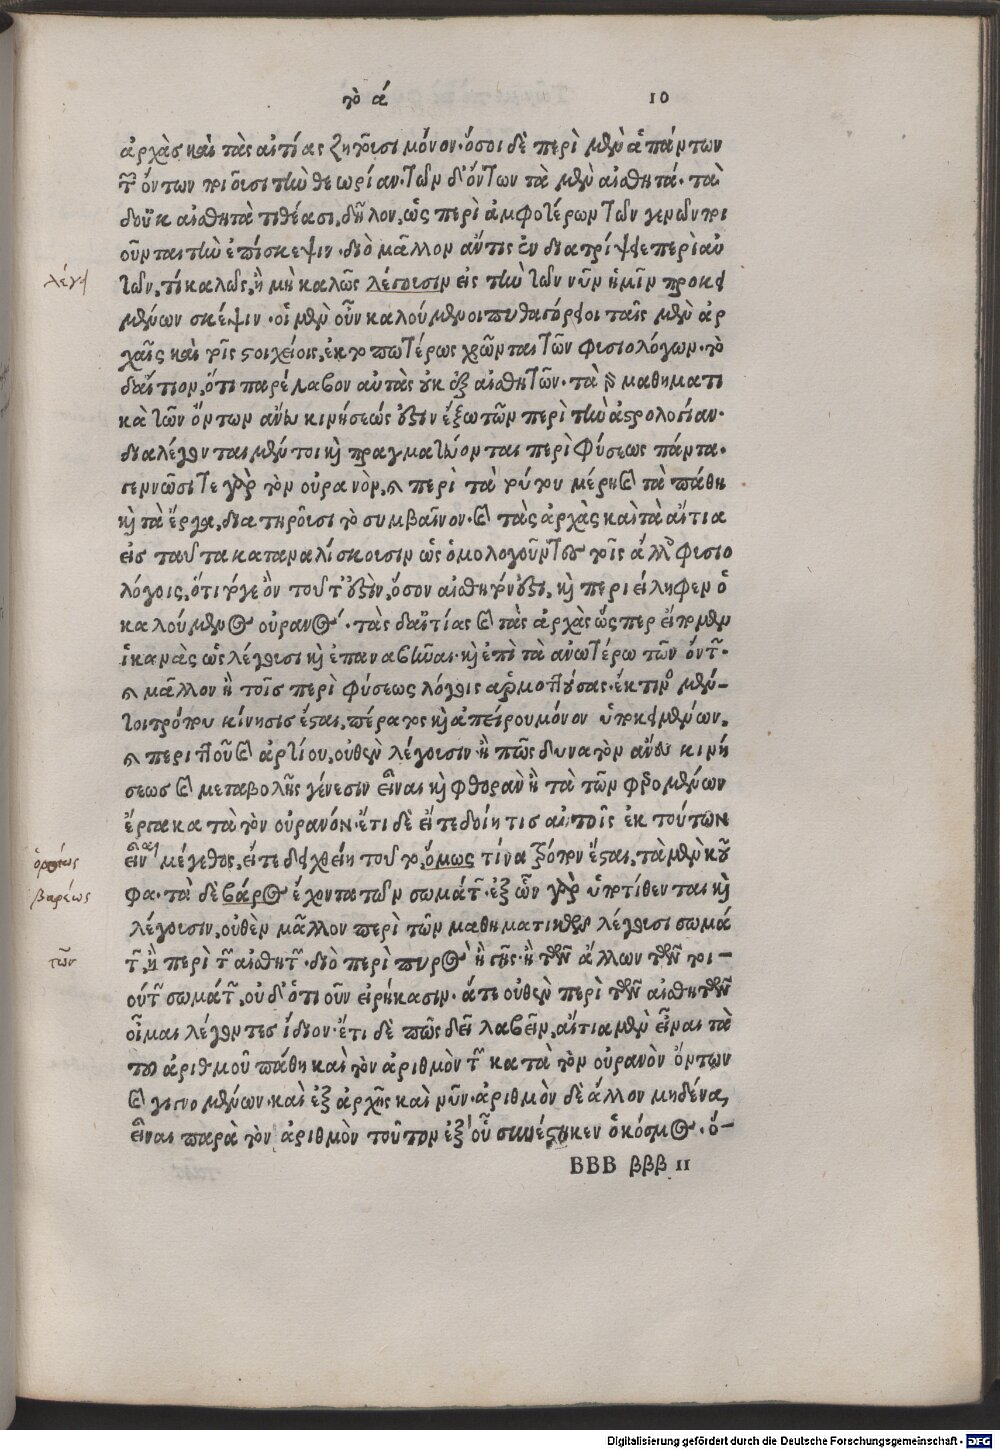 τὸ ά 10
ἀρχὰς καὶ τὰς αἰτίας ζητοῦσι μόνον· ὅσοι δὲ περὶ μὲν ἁπάντων
τῶν ὄντων ποιοῦσι τὴν θεωρίαν. τῶν δ' ὄντων τὰ μὲν αἰσθητά. τὰ
δ' οὐκ αἰσθητὰ τιθέασι, δῆλον, ὡς περὶ ἀμφοτέρων τῶν γενῶν ποι
οῦνται τὴν ἐπίσκεψιν. διὸ μᾶλλον ἄν τις ἐνδιατρίψῃ περὶ αὐ
τῶν, τί καλῶς, ἢ μὴ καλῶς λέγουσιν εἰς τὴν τῶν νῦν ἡμῖν προκει
λέγει
μένων σκέψιν. οἱ μὲν οὖν καλούμενοι πυθαγόρειοι ταῖς μὲν ἀρ
χαῖς καὶ τοῖς στοιχείοις, ἐκτοπωτέρως χρῶνται τῶν φυσιολόγων. τὸ
δ' αἴτιον, ὅτι παρέλαβον αὐτὰς οὐκ ἐξ αἰσθητῶν. τὰ γὰρ μαθηματι
κὰ τῶν ὄντων ἄνευ κινήσεώς ἐστιν ἔξω τῶν περὶ τὴν ἀστρολογίαν.
διαλέγονται μέντοι καὶ πραγματεύονται περὶ φύσεως πάντα.
γεννῶσί τε γὰρ τὸν οὐρανὸν, καὶ περὶ τὰ τούτου μέρη καὶ τὰ πάθη
καὶ τὰ ἔργα, διατηροῦσι τὸ συμβαῖνον. καὶ τὰς ἀρχὰς καὶ τὰ αἴτια
εἰς ταῦτα καταναλίσκουσιν ὡς ὁμολογοῦντες τοῖς ἄλλοις φυσιο
λόγοις, ὅτι τό γε ὂν τοῦτ' ἐστὶν, ὅσον αἰσθητόν ἐστι, καὶ περιείληφεν ὁ
καλούμενος οὐρανός. τὰς δ' αἰτίας καὶ τὰς ἀρχὰς ὥσπερ εἴπομεν
ἱκανὰς ὡς λέγουσι καὶ ἐπαναβῆναι. καὶ ἐπὶ τὰ ἀνωτέρω τῶν ὄντων.
καὶ μᾶλλον ἢ τοῖς περὶ φύσεως λόγοις ἁρμοττούσας. ἐκ τίνος μέν-
τοι τρόπου κίνησις ἔσται, πέρατος καὶ ἀπείρου μόνον ὑποκειμένων.
καὶ περιττοῦ καὶ ἀρτίου, οὐθὲν λέγουσιν. ἢ πῶς δυνατὸν ἄνευ κινή
σεως καὶ μεταβολῆς γένεσιν εἶναι καὶ φθορὰν ἢ τὰ τῶν φερομένων
ἔργα κατὰ τὸν οὐρανόν. ἔτι δὲ εἴτε δοίη τις αὐτοῖς ἐκ τούτων
εἶναι μέγεθος, εἴτε δειχθείη τοῦτο, ὅμως τίνα τρόπον ἔσται, τὰ μὲν κοῦ
βαρέως
φα. τὰ δὲ βάρος ἔχοντα τῶν σωμάτων. ἐξ ὧν γὰρ ὑποτίθενται καὶ
λέγουσιν, οὐθὲν μᾶλλον περὶ τῶν μαθηματικῶν λέγουσι σωμά
τῶν
των, ἢ περὶ τῶν αἰσθητῶν. διὸ περὶ πυρὸς ἢ γῆς. ἢ τῶν ἄλλων τῶν τοι-
ούτων σωμάτων, οὐδ' ὁτιοῦν εἰρήκασιν. ἅτε οὐθὲν περὶ τῶν αἰσθητῶν
οἶμαι λέγοντες ἴδιον. ἔτι δὲ πῶς δεῖ λαβεῖν, αἴτια μὲν εἶναι τὰ
τοῦ ἀριθμοῦ πάθη καὶ τὸν ἀριθμὸν τῶν κατὰ τὸν οὐρανὸν ὄντων
καὶ γινομένων. καὶ ἐξ ἀρχῆς καὶ νῦν. ἀριθμὸν δὲ ἄλλον μηδένα,
εἶναι παρὰ τὸν ἀριθμὸν τοῦτον ἐξ οὗ συνέστηκεν ὁ κόσμος. ὅ-
BBB βββ 11
Digitalisierung gefördert durch die Deutsche Forschungsgemeinschaft - DFG